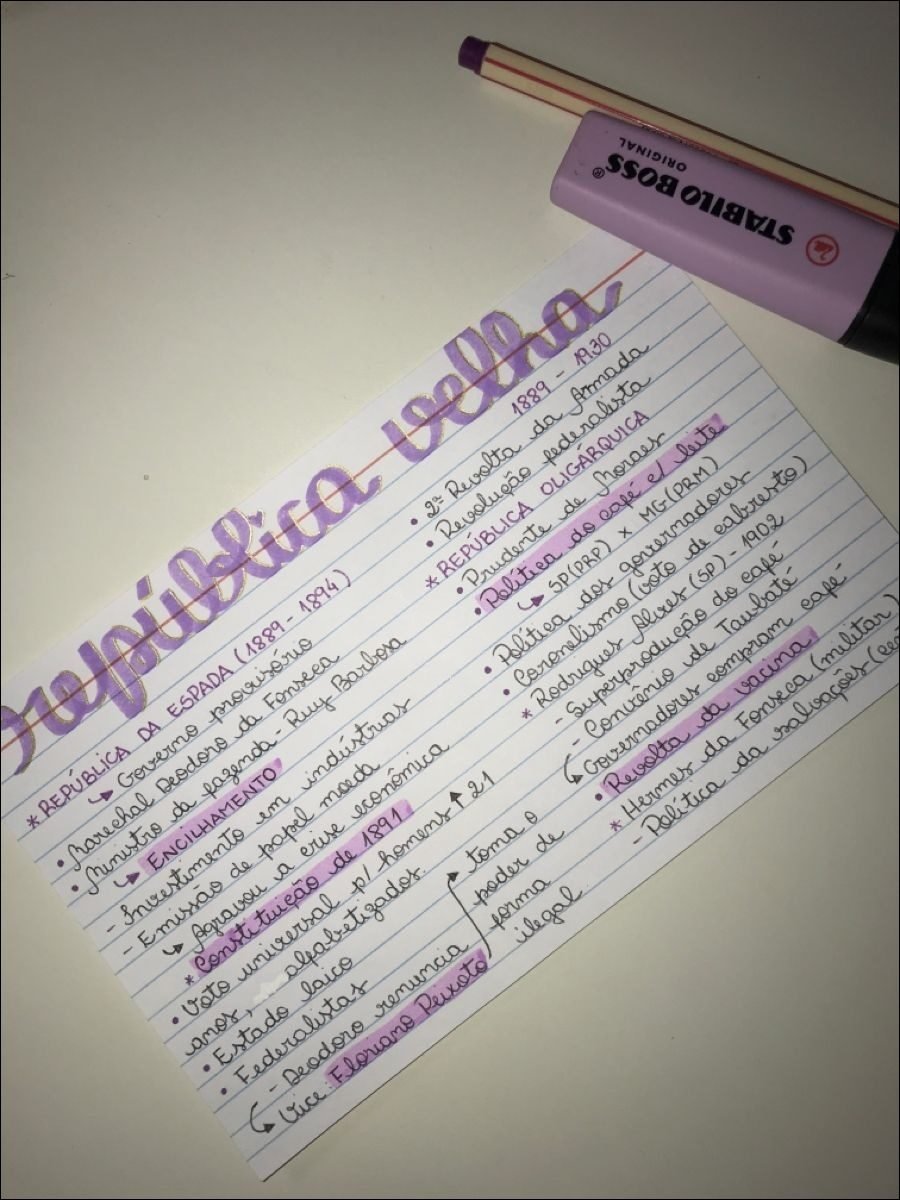 STABILO BOSS®
ORIGINAL
república velha
1889 - 1930
* REPÚBLICA DA ESPADA (1889 - 1894)
↳ Governo provisório
• Marechal Deodoro da Fonseca
• Ministro da fazenda - Ruy Barbosa
↳ ENCILHAMENTO
- Investimento em indústrias
- Emissão de papel moeda
↳ Agravou a crise econômica
* Constituição de 1891
• Voto universal p/ homens ↑ 21
anos, alfabetizados.
• Estado laico
• Federalistas
- Deodoro renuncia
↳ Vice: Floriano Peixoto
→ toma o
poder de
forma
ilegal
• 2ª Revolta da Armada
• Revolução federalista
* REPÚBLICA OLIGÁRQUICA
• Prudente de Moraes
• Política do café c/ leite
↳ SP(PRP) X MG(PRM)
• Política dos governadores
• Coronelismo (voto de cabresto)
* Rodrigues Alves (SP) - 1902
- Superprodução do café
- Convênio de Taubaté
↳ Governadores compram café
• Revolta da vacina
* Hermes da Fonseca (militar)
- Política da salvações